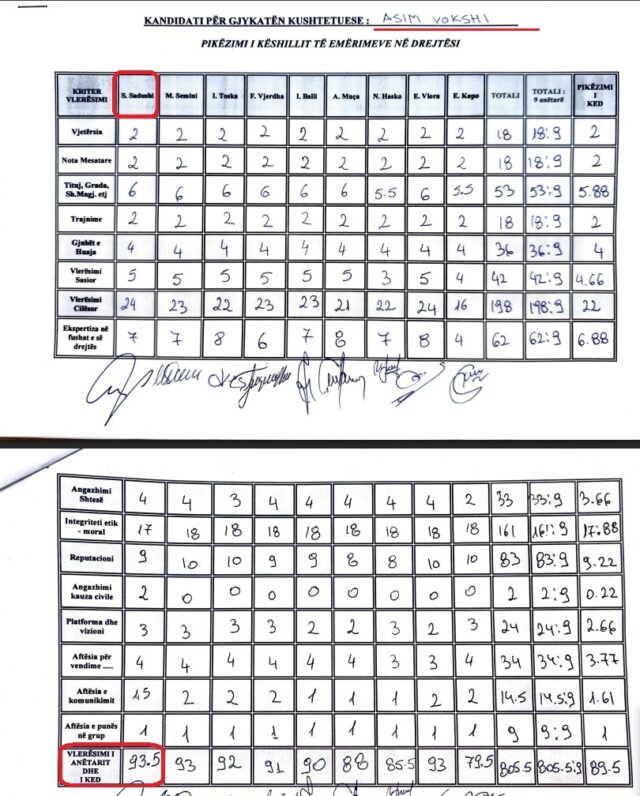 KANDIDATI PËR GJYKATËN KUSHTETUESE : ASIM VOKSHI
PIKËZIMI I KËSHILLIT TË EMËRIMEVE NË DREJTËSI
KRITER VLERËSIMI S. Sadushi M. Semini I. Toska F. Vjerdha I. Balli A. Muça N. Hasko E. Vlora E. Kapo TOTALI TOTALI : 9 anëtarë PIKËZIMI I KED
Vjetërsia 2 2 2 2 2 2 2 2 2 18 18:9 2
Nota Mesatare 2 2 2 2 2 2 2 2 2 18 18:9 2
Tituj, Grada, Sh.Magj. etj 6 6 6 6 6 6 5.5 6 5.5 53 53:9 5.88
Trajnime 2 2 2 2 2 2 2 2 2 18 18:9 2
Gjuhët e Huaja 4 4 4 4 4 4 4 4 4 36 36:9 4
Vlerësimi Sasior 5 5 5 5 5 5 3 5 4 42 42:9 4.66
Vlerësimi Cilësor 24 23 22 23 23 21 22 24 16 198 198:9 22
Ekspertiza në fushat e së drejtës 7 7 8 6 7 8 7 8 4 62 62:9 6.88
Angazhimi Shtesë 4 4 3 4 4 4 4 4 2 33 33:9 3.66
Integriteti etik - moral 17 18 18 18 18 18 18 18 18 161 161:9 17.88
Reputacioni 9 10 10 9 9 8 8 10 10 83 83:9 9.22
Angazhimi kauza civile 2 0 0 0 0 0 0 0 0 2 2:9 0.22
Platforma dhe vizioni 3 3 3 3 2 2 3 2 3 24 24:9 2.66
Aftësia për vendime ..... 4 4 4 4 4 4 3 3 4 34 34:9 3.77
Aftësia e komunikimit 1.5 2 2 2 1 1 1 2 2 14.5 14.5:9 1.61
Aftësia e punës në grup 1 1 1 1 1 1 1 1 1 9 9:9 1
VLERËSIMI I ANËTARIT DHE I KED 93.5 93 92 91 90 88 85.5 93 79.5 805.5 805.5:9 89.5